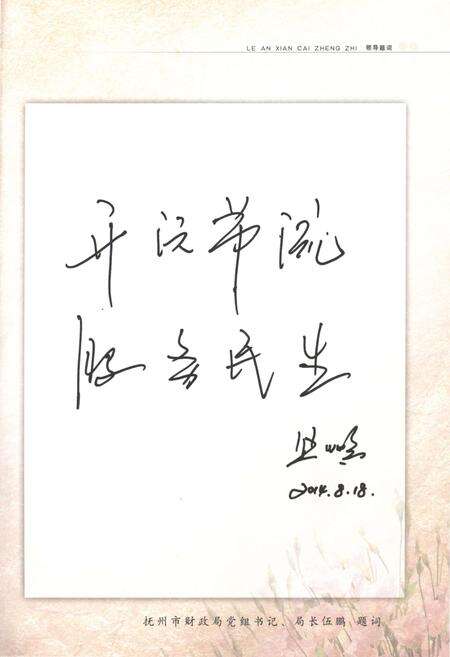 LE AN XIAN CAI ZHENG ZHI 领导题词
开源节流
服务民生
2014.8.18.
抚州市财政局党组书记、局长伍鹏 题词